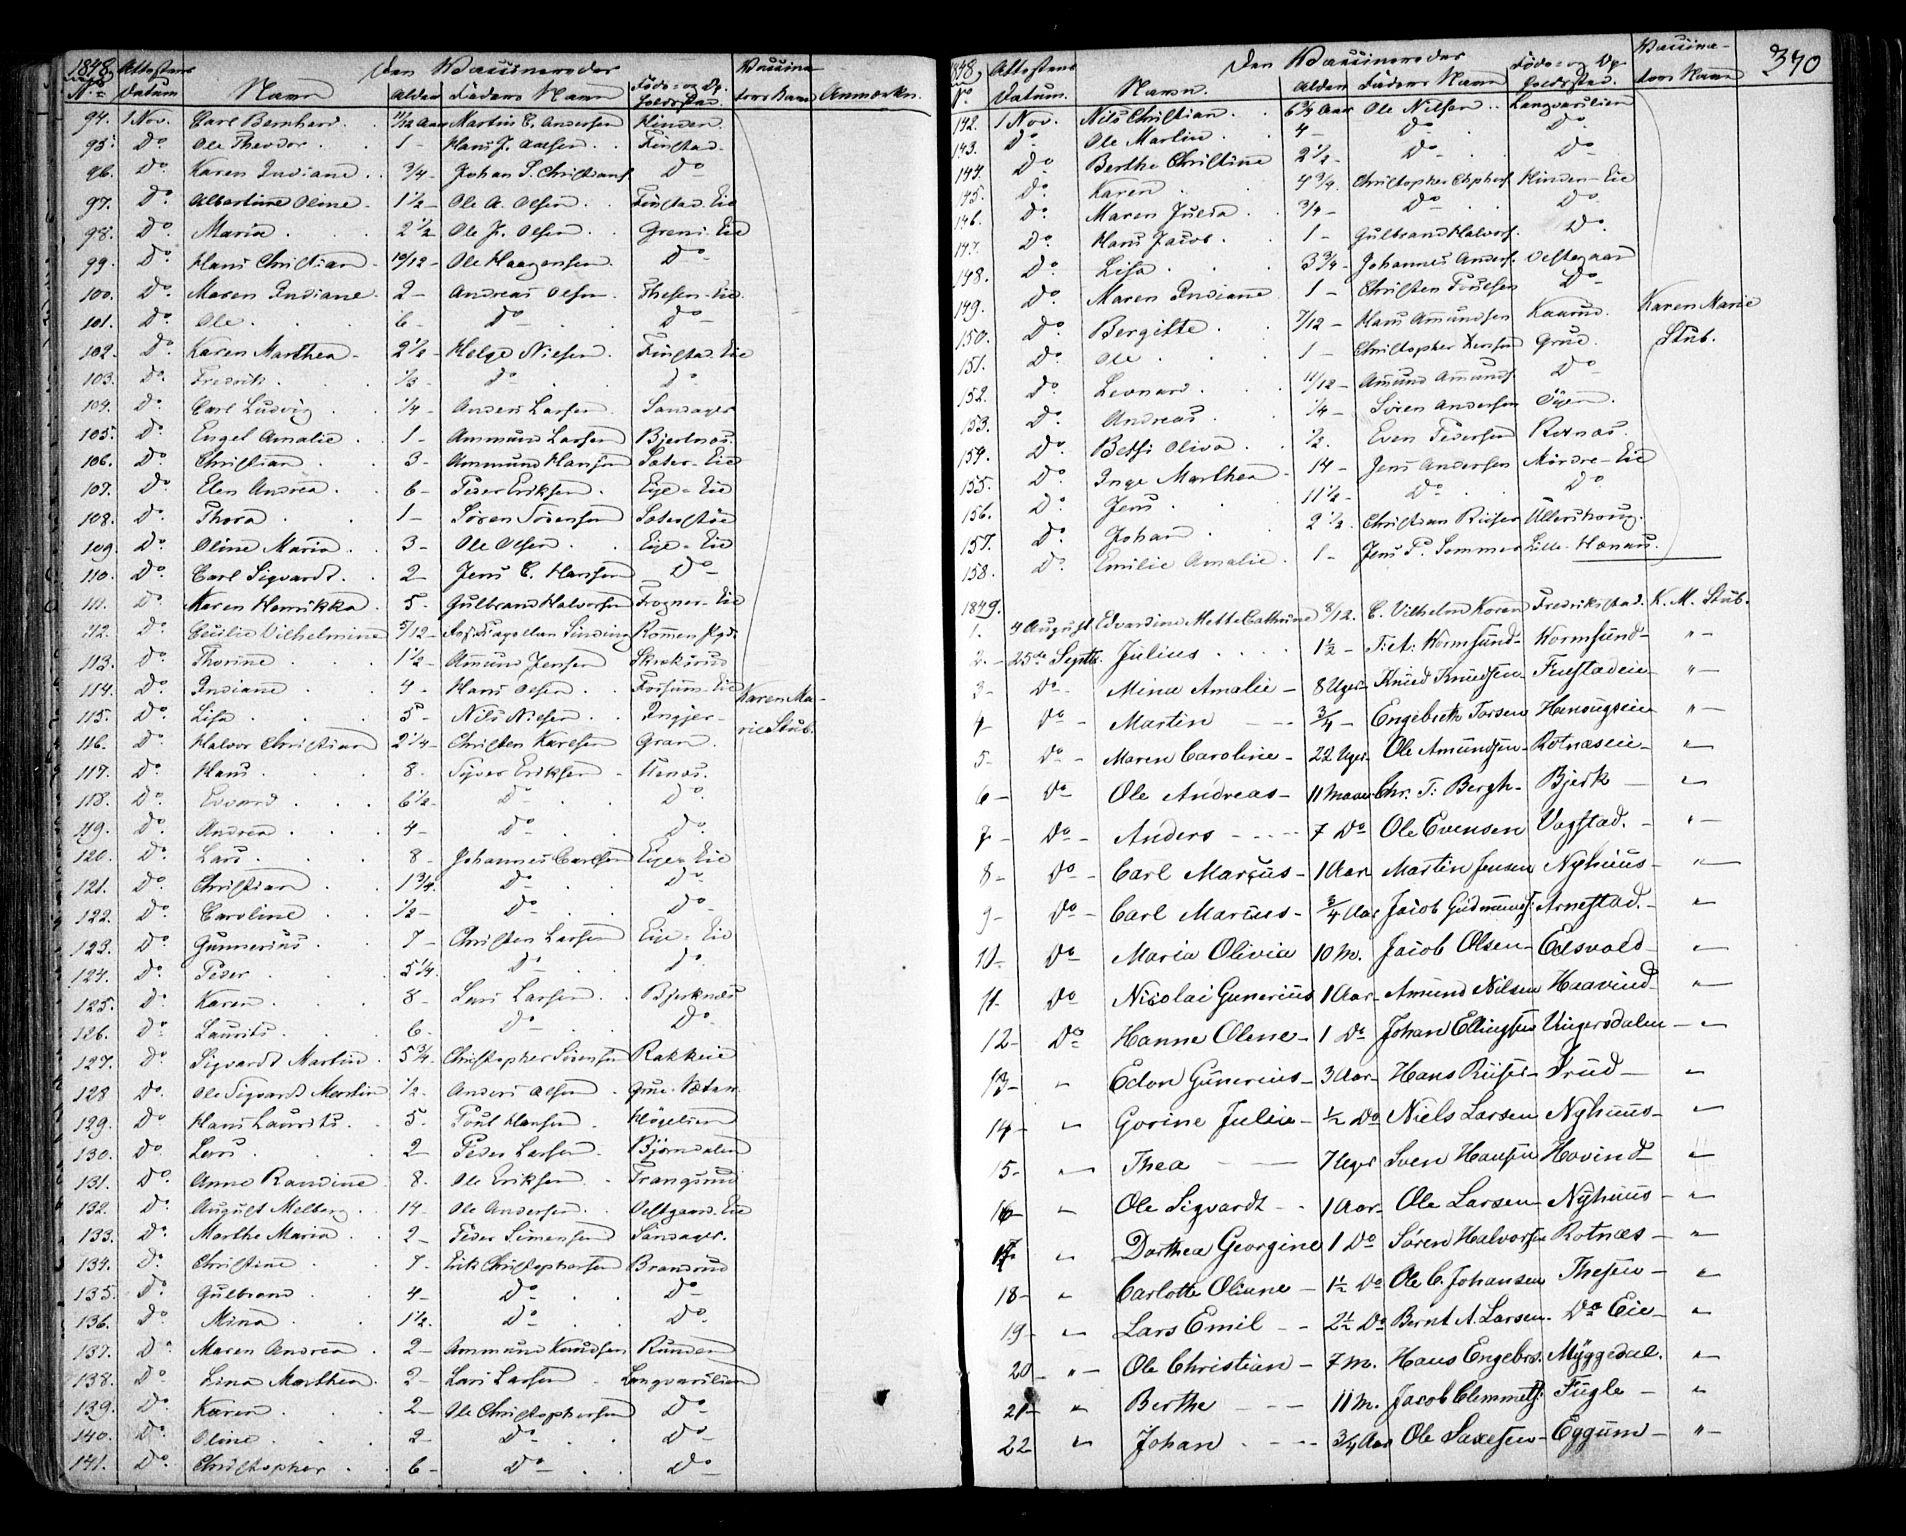 1848. Attestens Den Vaccineredes Vaccina-
No Datum Navn Alder Faders Navn Føde- og Op- tors Navn Anmærkn.
holdsted.
94. 1 Nov. Carl Bernhard. 11/12 Aar Martin C. Andersen Hinden.
95. Do Ole Theodor. 1 - Hans J. Olsen. Finstad.
96. Do Karen Indiane. 3/4 - Johan S. Christians. Do
97. Do Albertine Oline - 1 1/2 - Ole A. Olsen. Finstad-Eie
98. Do Maria. 2 1/2 Ole J. Olsen. Greni-Eie
99. Do Hans Christian. 10/12 - Ole Haagensen. Do
100. Do Maren Indiane. 2 - Andreas Olsen. Thesen-Eie.
101. Do Ole. 6 - Do Do
102. Do Karen Marthea. 2 1/2 - Helge Nielsen. Finstad-Eie
103. Do Fredrik. 1/3 - Do Do
104. Do Carl Ludvig. 1/4 - Anders Larsen. Sandager
105. Do Engel Amalie. 1 - Ammund Larsen Bjertnæs.
106. Do Christian. 3 - Ammund Hansen Sater-Eie
107. Do Elen Andrea. 6 - Peder Eriksen. Eye-Eie
108. Do Thora. 1 - Søren Sørensen
109. Do Oline Maria. 3 - Ole Olsen. Eye-Eie
110. Do Carl Sigvardt. 2 - Jens C. Hansen Do
111. Do Karen Henrikka. 5. Gulbrand Halvorsen Frogner-Eie
112. Do Cecilie Vilhelmine 5/12 - Sinding Romen Pgd.
113. Do Thorine 1 1/2 - Amund Jensen
114. Do Indiane 4 - Hans Olsen. Fossum-Eie Karen Ma-
115. Do Lisa. 5 - Nils Nielsen. Ingier- rie Stub.
116. Do Halvor Christian 2 1/4 - Christen Karlsen Gran.
117. Do Hans. 8. Syver Eriksen - Henas.
118. Do Edvard. 6 1/2 - Do Do
119. Do Andrea 4 - Do Do
120. Do Lars. 8 - Johannes Carlsen Eye-Eie
121. Do Christian. 1 3/4. Do Do
122. Do Caroline 1/2 - Do Do
123. Do Gunnerius. 7 - Christen Larsen Eye-Eie
124. Do Peder 5 1/4. Do Do
125. Do Karen. 8 - Lars Larsen. Bjerknæs
126. Do Laurits. 6. Do Do
127. Do Sigvardt Martin. 5 3/4. Christopher Sørensen Rakkeie
128 Do Ole Sigvardt Martin 1/2. Anders Olsen
129. Do Hans Laurits. 5. Poul Hansen.
130. Do Lars. 2 Peder Larsen Bjørndalen
131. Do Anne Randine 8. Ole Eriksen. Trangsund
132. Do August Melberg. 14 - Ole Andersen. Vestgaard-Eie
133. Do Marthe Maria. 2 - Peder Simensen Sandager.
134. Do Christine. 7 - Erik Christophersen Brandrud
135. Do Gulbrand. 4 - Do Do
136. Do Mina 1 1/2. Do Do
137. Do Maren Andrea. 2 - Ammund Knudsen Runden
138. Do Lina Marthea. 2 - Lars Larsen. Langvaslien
139. Do Karen. 2 - Ole Christophersen Do
140. Do Oline. 2 - Do Do
141. Do Christopher. 6 - Do Do
1848. Attestens Den Vaccineredes Vaccina- 370
No Datum. Navn. Alder Faders Navn Føde- og Op- tors Navn
holdsted.
142. 1 Nov. Nils Christian. 6 3/4 Aar Ole Nilsen. Langvaslien
143. Do Ole Martin. 4 - Do Do
144. Do Berthe Christine 2 1/2 - Do Do
145. Do Karen. 4 3/4. Christopher Chphers. Hinden-Eie
146. Do Maren Julia. 3/4 - Do Do
147. Do Hans Jacob. 1 - Gulbrand Halvors. Do
148. Do Lisa. 3 3/4 - Johannes Anders. Vestgaar
149. Do Maren Indiane 1 - Christen Poulsen Do
150. Do Bergitte. 7/12 - Hans Amundsen Kaarud. Karen Marie
151. Do Ole. 1 - Christopher Grue. Stub.
152. Do Leonard. 11/12 - Amund Amunds. Do
153. Do Andreas. 1/4 - Søren Andersen
154. Do Bethi Oliva. 1/2. Even Pedersen Rotnæs.
155. Do Inge Marthea - 14 - Jens Andersen Mordre-Eie
156. Do Jens. 11 1/2 - Do Do
157. Do Johan. 2 1/2. Christian Riiser Ullershoug.
158. Do Emilie Amalie. 1 - Jens P. Sommer Lille-Hænas.
1849.
1. 4 August Edvardine Mette Cathrine 8/12. C. Vilhelm Koren Fredrikstad. K. M. Stub.
2. - 25de Septb. Julius 1 1/2 - T: et: Wormsund - Wormsund - " -
3 - Do - Mina Amalie - 8 Uger - Knud Knudsen - Finstadeie - " -
4 - Do - Martin - 3/4 - Engebreth Torsen Hansugseie " -
5 - Do - Maren Caroline - 22 Uger - Ole Amundsen - Rotnæseie - " -
6 - Do Ole Andreas - 11 Maan. Chr. T: Bergh - Bjerk - " -
7 - Do - Anders - 7 Do Ole Evensen Vagstad. - " -
8 - Do - Carl Marcus - 1 Aar Martin Jensen Nyhuus - " -
9 - Do - Carl Marius - 3/4 Aar Jacob Gudmunds: Arnestad. - " -
10 - Do Maria Olivia 10 M. Jacob Olsen - Eidsvold - " -
11 - Do Nicolai Gunerius 1 Aar - Amund Nilsen Haavind - " -
12 - Do Hanne Olene - 1 Do Johan Ellingsen Vingersdalen - " -
13 - " Edon Gunerius - 3 Aar - Hans Riiser - Trud - " -
14 - " Gorine Julie - 1/2 Do Niels Larsen Nyhuus - " -
15 - " Thea - 7 Uger Sven Hansen Hovind - " -
16 - " Ole Sigvardt - 1 Aar - Ole Larsen - Nyhuus - " -
17 - " Dorthea Georgine 1 Do Søren Halvorsen Rotnæs - " -
18 - " Carlotte Oliane - 1 1/2 Do Ole C. Johansen Thesen - " -
19 - " Lars Emil - 2 1/2 Do Bernt A. Larsen. Do Eie - " -
20 - " - Ole Christian - 7 M. Hans Engebrs. Myggedal. " -
21 - " Berthe - 11 M. Jacob Clemmets: Fugle - " -
22 " Johan. - 3/4 Aar Ole Saxesen - Eggum - " -